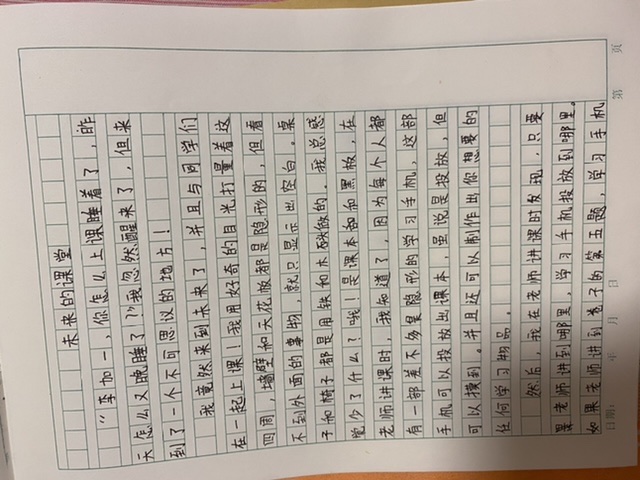 未来的课堂
“李加一，你怎么上课睡着了，昨
天怎么又晚睡了！”我忽然醒来了，但来
到了一个不可思议的地方！
我竟然来到未来了，并且与同学们
在一起上课！我用好奇的目光打量着这
四周，墙壁和天花板都是隐形的，但看
不到外面的事物，就只显示出空白。桌
子和椅子都是用铁和木秋做的，我总感
觉少了什么？哦！是课本和黑板，在
老师讲课时，我知道了，因为每个人都
有一部差不多是隐形的学习手机，这部
手机可以投放出课本，虽说是投放，但
可以摸到。并且还可以制作出你想要的
任何学习物品。
然后，我在老师讲课时发现，只要
要老师讲到哪里，学习手机投放到哪里。
如果老师讲到卷子的第五题，学习手机
日期： 年 月 日
第 页